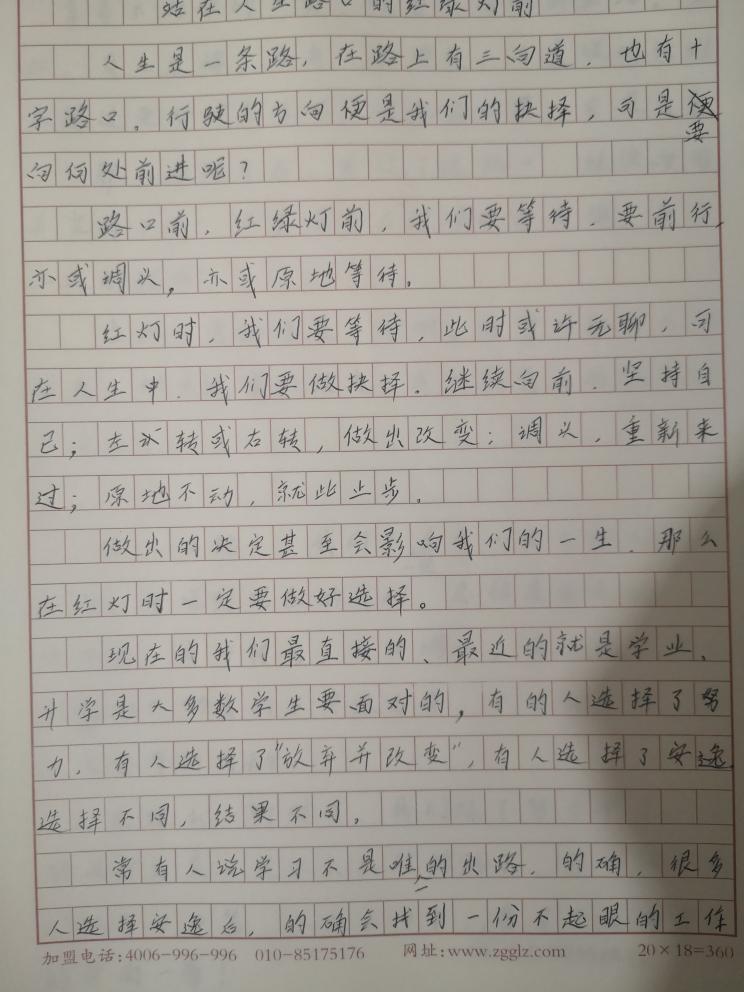 站在人生路口的红绿灯前
人生是一条路，在路上有三向道，也有十
字路口。行驶的方向便是我们的抉择，可是要
向何处前进呢？
路口前，红绿灯前，我们要等待，要前行，
亦或调头，亦或原地等待。
红灯时，我们要等待，此时或许无聊，可
在人生中，我们要做抉择，继续向前，坚持自
己；左转或右转，做出改变；调头，重新来
过；原地不动，就此止步。
做出的决定甚至会影响我们的一生，那么
在红灯时一定要做好选择。
现在的我们最直接的、最近的就是学业、
升学是大多数学生要面对的，有的人选择了努
力，有人选择了“放弃并改变”，有人选择了安逸，
选择不同，结果不同。
常有人说学习不是唯一的出路，的确，很多
人选择安逸后，的确会找到一份不起眼的工作
加盟电话:4006-996-996 010-85175176 网址:www.zgglz.com 20×18=360